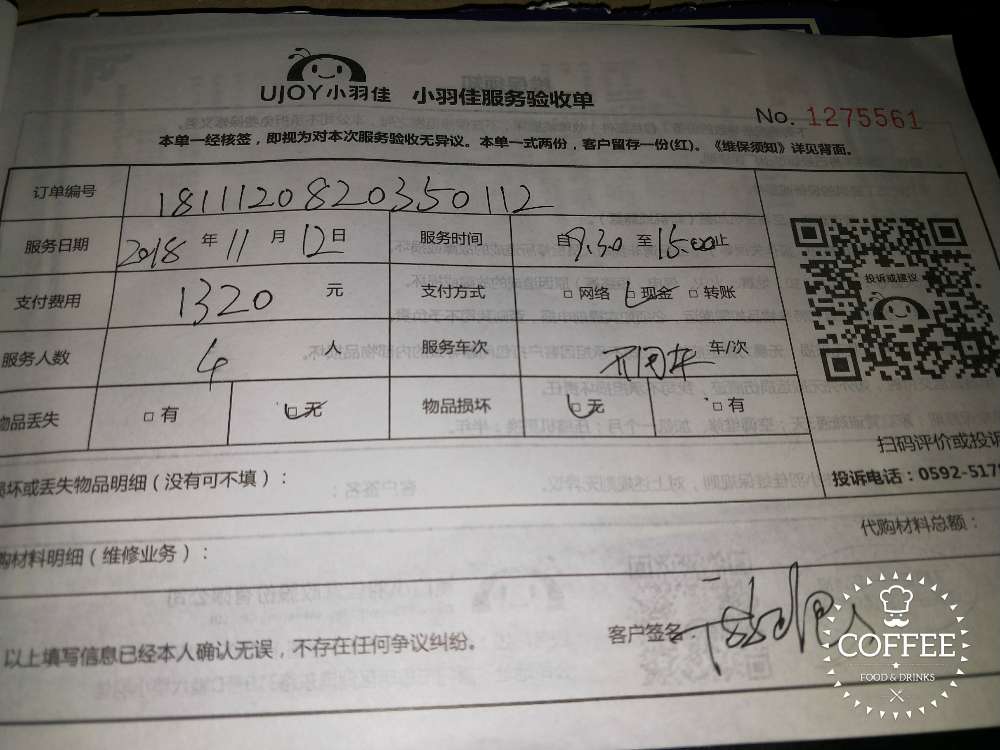 UJOY小羽佳 小羽佳服务验收单
No. 1275561
本单一经核签，即视为对本次服务验收无异议。本单一式两份，客户留存一份(红)。《维保须知》详见背面。
订单编号 181112082035 0112
服务日期 2018 年 11 月 12 日 服务时间 自 9.30 至 16:00 止
投诉或建议
支付费用 1320 元 支付方式 □ 网络 □ 现金 □ 转账
服务人数 4 人 服务车次 车/次
物品丢失 □ 有 □ 无 物品损坏 □ 无 □ 有
扫码评价或投诉
坏或丢失物品明细（没有可不填）：
投诉电话：0592-517
购材料明细（维修业务）： 代购材料总额：
以上填写信息已经本人确认无误，不存在任何争议纠纷。 客户签名：
COFFEE
FOOD & DRINKS